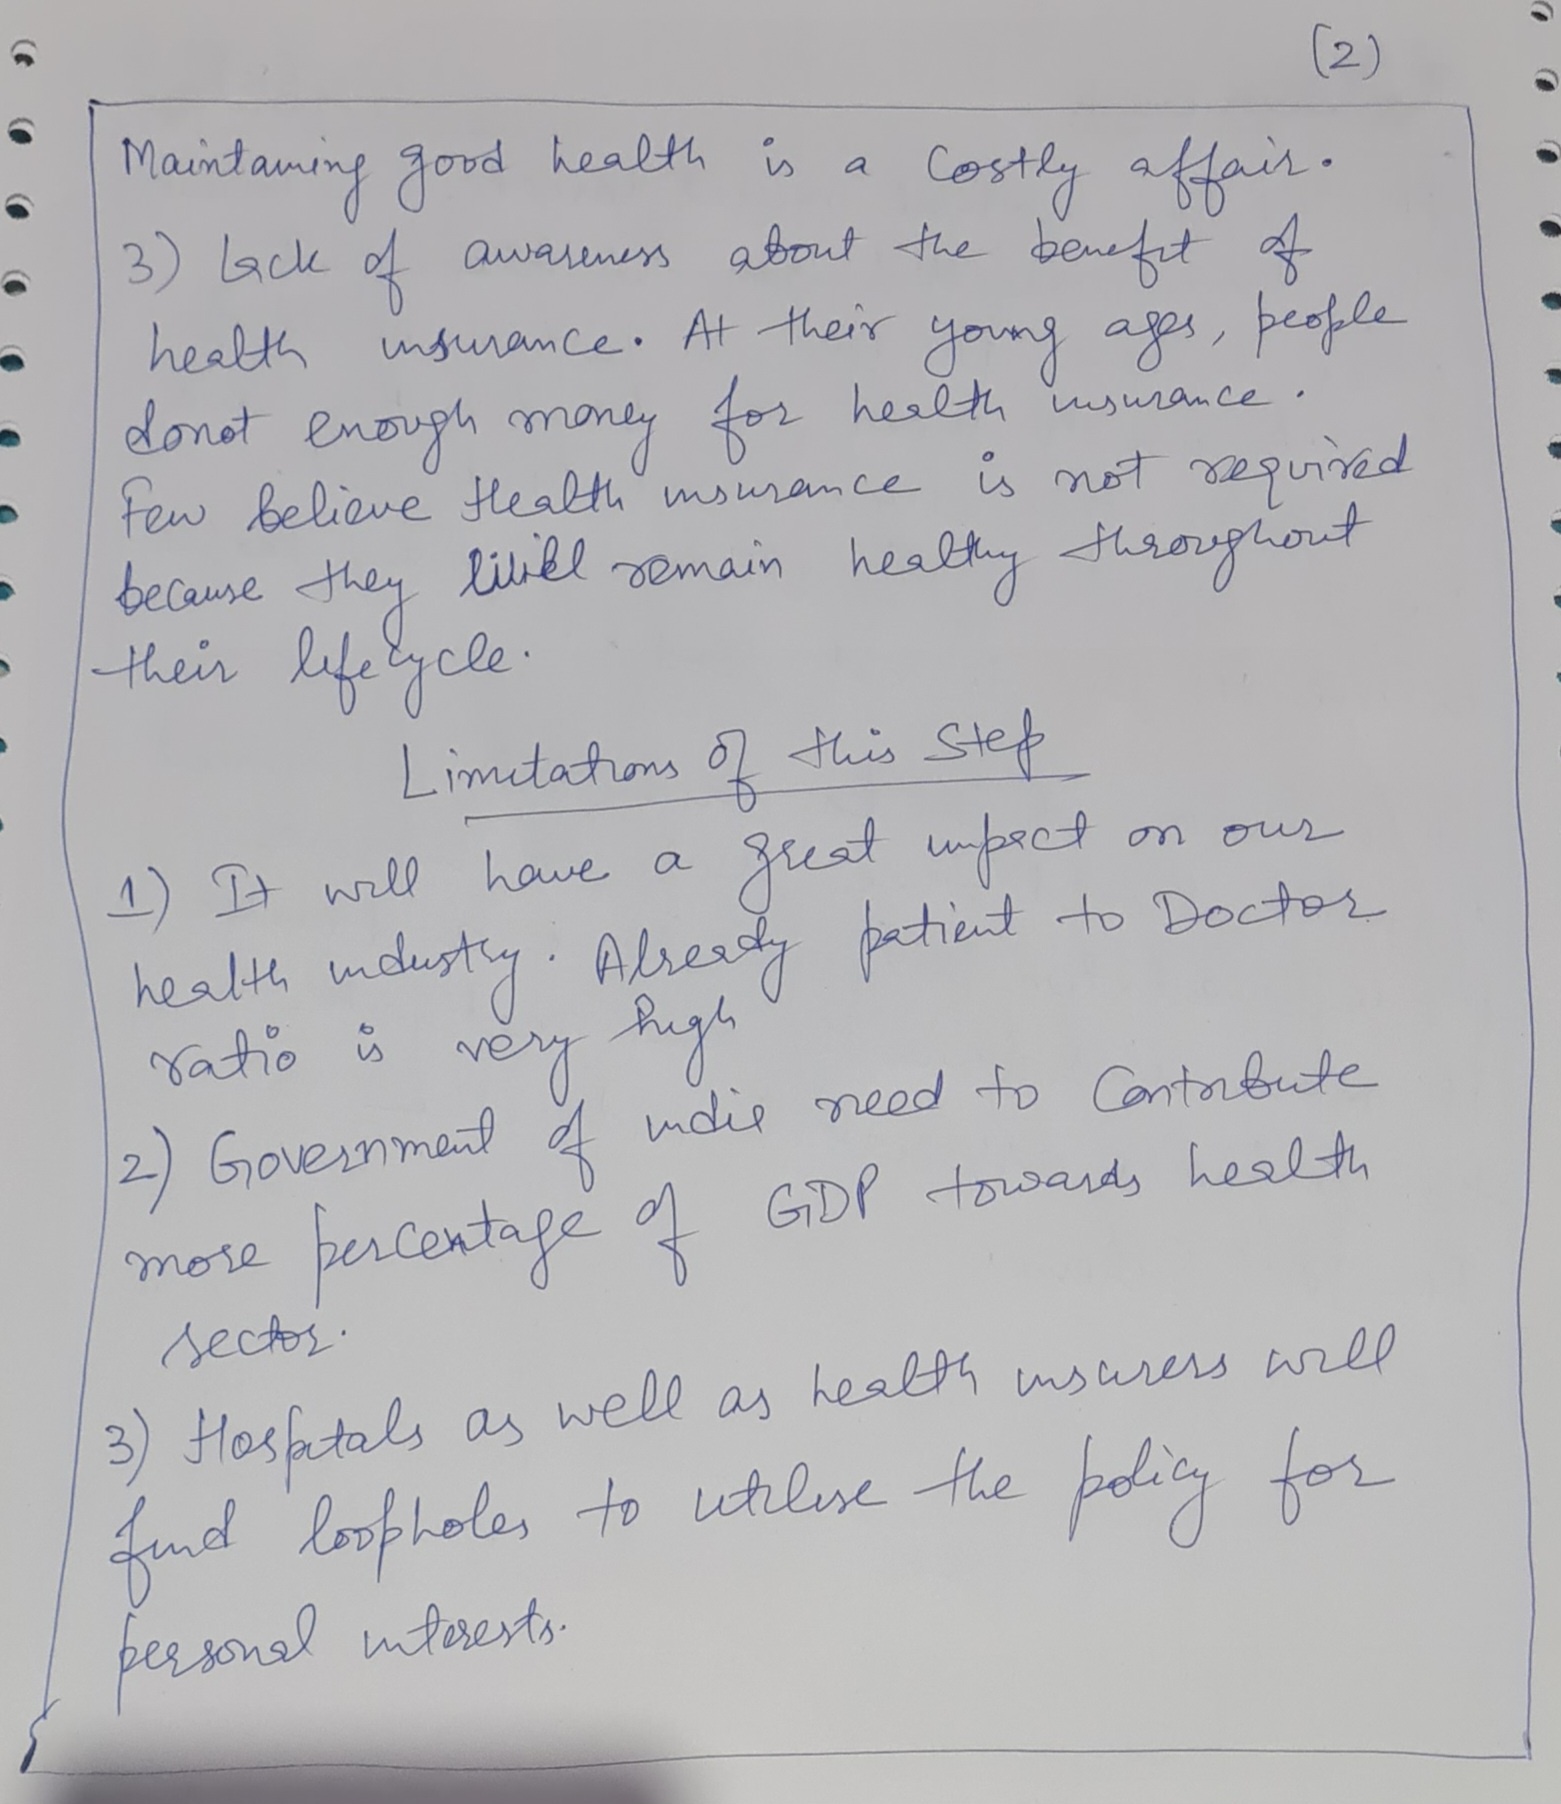 (2)
Maintaining good health is a costly affair.
3) Lack of awareness about the benefit of
health insurance. At their young ages, people
donot enough money for health insurance.
Few believe Health insurance is not required
because they will remain healthy throughout
their lifecycle.
Limitations of this Step
1) It will have a great impact on our
health industry. Already patient to Doctor
ratio is very high
2) Government of india need to Contribute
more percentage of GDP towards health
sector.
3) Hospitals as well as health insurers will
find loopholes to utilise the policy for
personal interests.